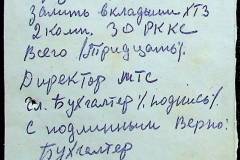 залить вкладыши ХТЗ
2 комп. 3D РККС
Всего /Тридцать/.
Директор МТС
гл. Бухгалтер /подпись/.
С подлинным Верно:
Бухгалтер